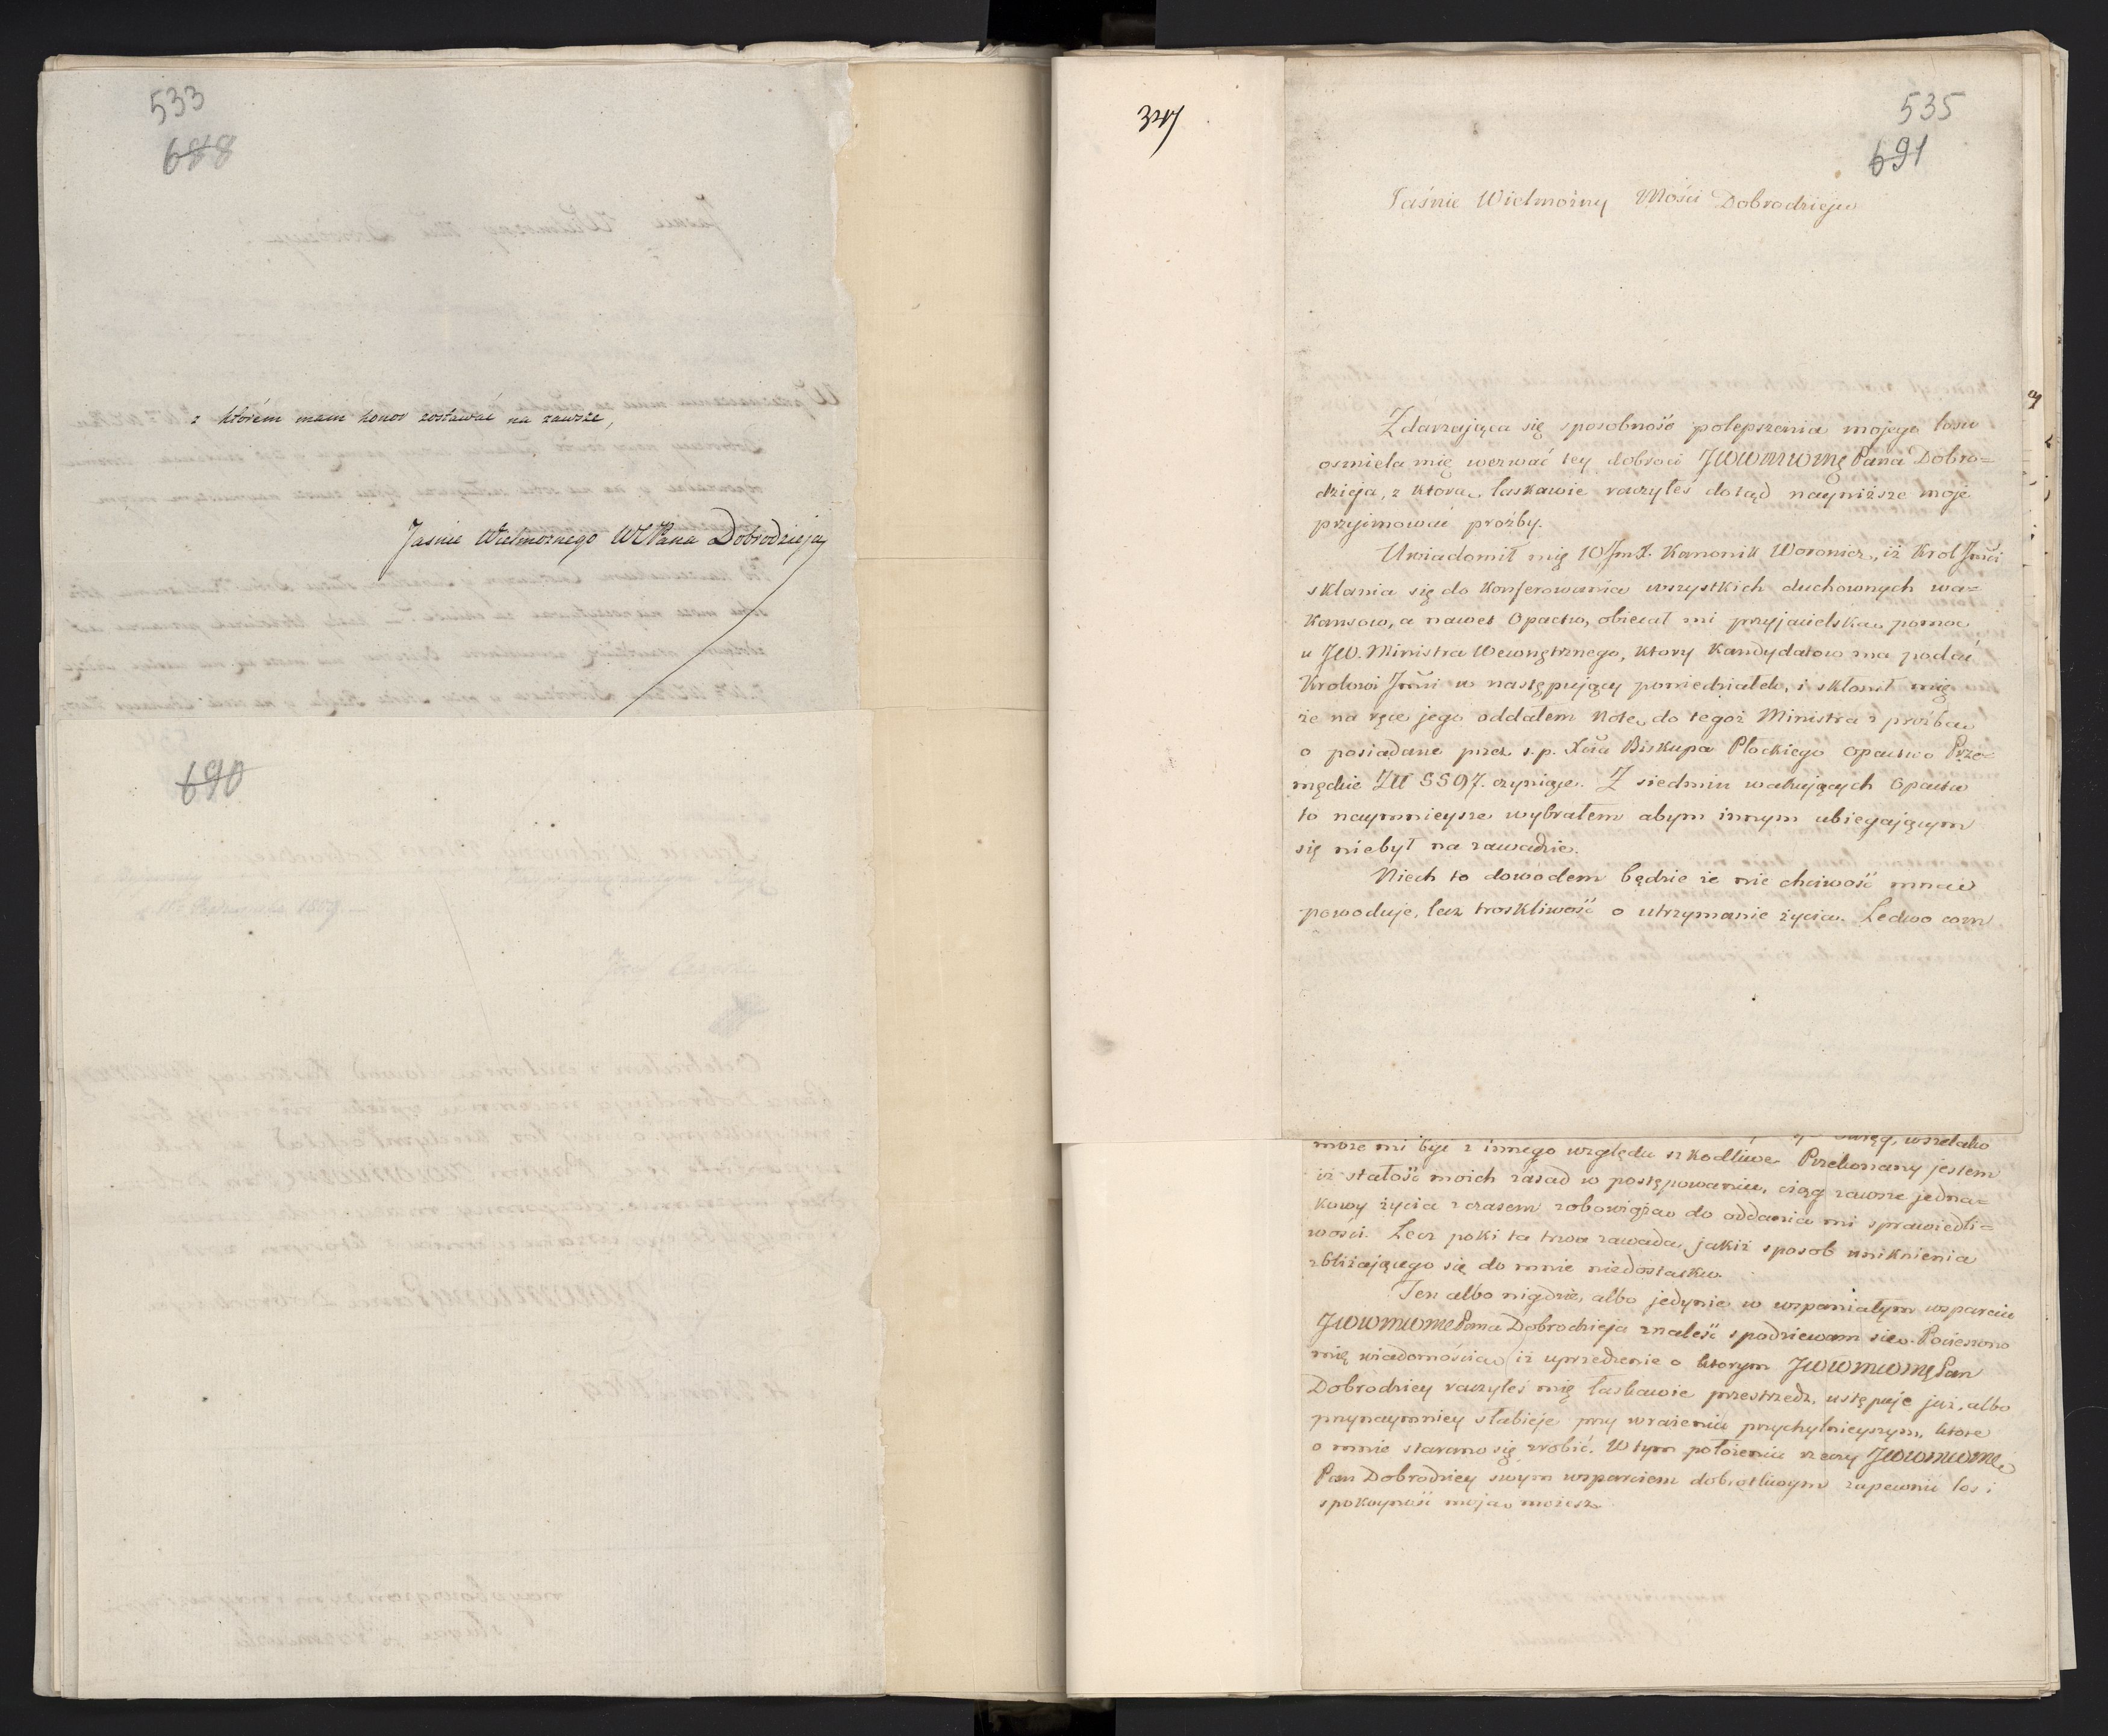 533
688
z ktorem mam honor zostawać na zawsze,
Jasnie Wielmoznego WPana Dobrodzieja
690
347
535
691
Jaśnie Wielmożny Mośći Dobrodzieju
Zdarzająca się sposobność polepszenia mojego losu
osmiela mię wezwać tey dobroci JWWMWMę Pana Dobro=
dzieja, z ktora łaskawie raczyłeś dotąd nayniższe moje
przyjmować prożby.
Uwiadomił mię Kanonik Woronicz, iż Krol Jmći
skłania się do konferowania wszystkich duchownych wa=
kansow, a nawet Opactw, obiecał mi przyjacielska pomoc
u JW. Ministra Wewnętrznego, ktory Kandydatow ma podać
Krolowi Jmći w następujący poniedziałek, i skłonił mię
że na ręce jego oddałem Notę do tegoż Ministra z proźba
o posiadane przez s.p. Xcia Biskupa Płockiego opactwo Prze=
mędzkie czyniąc. Z siedmiu wakujących Opactw
to naymnieysze wybrałem abym innym ubiegającym
się niebył na zawadzie.
Niech to dowodem będzie że nie chciwość mna
powoduje, lecz troskliwość o utrzymanie życia. Ledwo com
wszelako
może mi być z innego względu szkodliwe. Przekonany jestem
iż stałość moich zasad w postępowaniu, ciąg zawsze jedna=
kowy życia z czasem zobowiąża do oddania mi sprawiedli=
wości. Lecz poki ta trwa zawada, jakiż sposob uniknienia
zbliżającego się do mnie niedostatku.
Ten albo nigdzie, albo jedynie w wspaniałym wsparciu
JWWMWMePana Dobrodzieja znaleść spodziewam się. Pocieszono
mię wiadomościa iż uprzedzenie o ktorym JWWMWMę Pan
Dobrodziey raczyłeś mię łaskawie przestrzedz, ustępuje już, albo
przynaymniey słabieje przy wrażeniu przychylnieyszym, ktore
o mnie starano się zrobić. W tym położeniu rzeczy JWWMWMe
Pan Dobrodziey swym wsparciem dobrotliwym zapewnić los i
spokoyność moja możesz